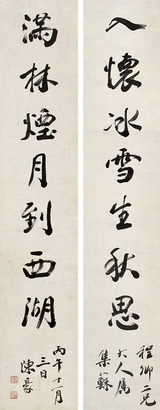 入懷冰雪生秋思
程卿二兄
大人属
集蘇
滿林煙月到西湖
丙午十一月
三日
陳豪